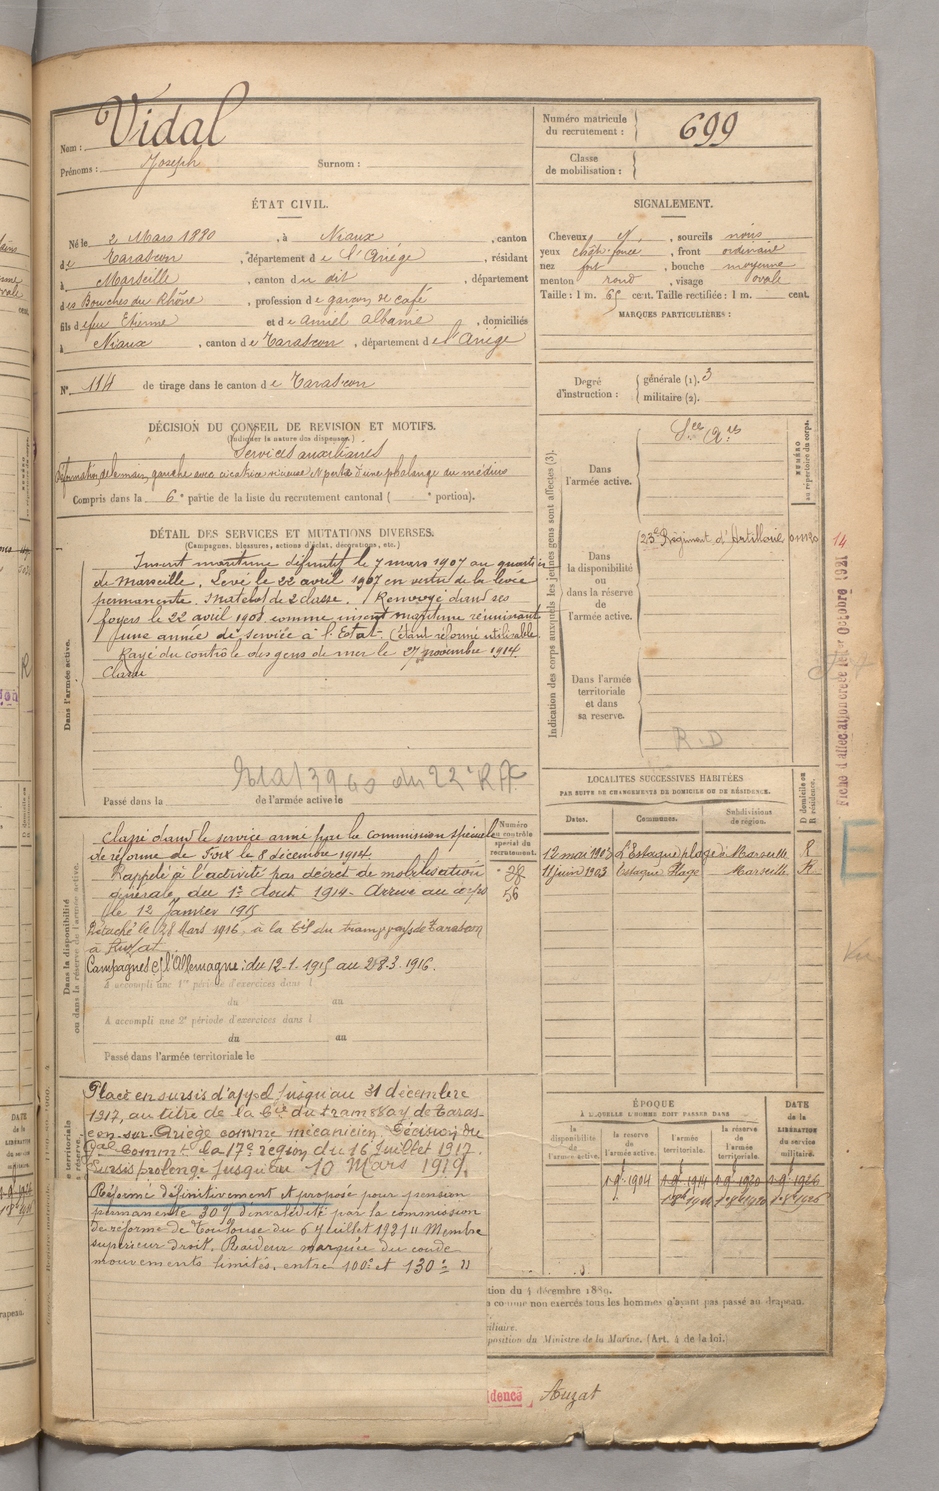 Nom : Vidal
Prénoms : Joseph Surnom :
Numéro matricule du recrutement : 699
Classe de mobilisation :
ÉTAT CIVIL.
Né le 2 Mars 1880, à Niaux, canton
de Tarascon, département de l'Ariége, résidant
à Marseille, canton du dit, département
des Bouches du Rhône, profession de garçon de café
fils de feu Etienne et de Albanie, domiciliés
à Niaux, canton de Tarascon, département de l'Ariége
N° 114 de tirage dans le canton de Tarascon
SIGNALEMENT.
Cheveux N, sourcils noirs
yeux, front ordinaire
nez fort, bouche moyenne
menton rond, visage ovale
Taille : 1 m. 65 cent. Taille rectifiée : 1 m. cent.
MARQUES PARTICULIÈRES :
Degré d'instruction : générale (1). 3
militaire (2).
DÉCISION DU CONSEIL DE REVISION ET MOTIFS.
(Indiquer la nature des dispenses)
Services auxiliaires
déformation de la main gauche avec cicatrice vicieuse et perte d'une phalange du médius
Compris dans la 6e partie de la liste du recrutement cantonal ( e portion).
DÉTAIL DES SERVICES ET MUTATIONS DIVERSES.
(Campagnes, blessures, actions d'éclat, décorations, etc.)
Dans l'armée active.
Inscrit maritime définitif le 7 mars 1907 au quartier
de Marseille. Levé le 22 avril 1907 en vertu de la levée
permanente. Matelot de 2 classe. Renvoyé dans ses
foyers le 22 avril 1908 comme inscrit maritime réunissant
une année de service à l'Etat. (étant réformé utilisable
Rayé du contrôle des gens de mer le 27 novembre 1914.
Classé
du 22e R A
Passé dans la de l'armée active le
Indication des corps auxquels les jeunes gens sont affectés (3).
NUMÉRO au répertoire du corps.
Dans l'armée active.
Dans la disponibilité ou dans la réserve de l'armée active.
23e Régiment d'Artillerie
Dans l'armée territoriale et dans sa réserve.
R.D
LOCALITÉS SUCCESSIVES HABITÉES
PAR SUITE DE CHANGEMENTS DE DOMICILE OU DE RÉSIDENCE.
Dates. Communes. Subdivisions de région. D domicile ou R résidence.
12 mai 1903 L'Estaque plage à Marseille R
11 juin 1903 Estaque Plage Marseille R
Dans la disponibilité ou dans la réserve de l'armée active.
Numéro au contrôle spécial du recrutement.
56
Classé dans le service armé par la Commission spéciale
de réforme de Foix le 8 décembre 1914.
Rappelé à l'activité par décret de mobilisation
générale du 1er Aout 1914. Arrivé au corps
le 12 Janvier 1915
Détaché le 28 Mars 1916, à la Cie du tramways de Tarascon
à Auzat
Campagnes c/ l'Allemagne : du 12-1-1915 au 28-3-1916.
A accompli une 1re période d'exercices dans l
du au
A accompli une 2e période d'exercices dans l
du au
Passé dans l'armée territoriale le
Placé en sursis d'appel jusqu'au 31 décembre
1917, au titre de la Cie du tramway de Taras-
con-sur-Ariège comme mécanicien. Décision du
Gal Commt la 17e région du 16 Juillet 1917.
Sursis prolongé jusqu'au 10 Mars 1919.
Réformé définitivement et proposé pour pension
permanente 30% d'invalidité par la commission
de réforme de Toulouse du 6 Juillet 1921 "Membre
supérieur droit. Raideur marquée du coude
mouvements limités, entre 100° et 130° "
ÉPOQUE
À LAQUELLE L'HOMME DOIT PASSER DANS
la disponibilité de l'armée active. la réserve de l'armée active. l'armée territoriale. la réserve de l'armée territoriale. DATE de la LIBÉRATION du service militaire.
1-9-1904 1-9-1914 1-9-1920 1-9-1926
tion du 4 décembre 1889.
comme non exercés tous les hommes n'ayant pas passé au drapeau.
iliaire.
position du Ministre de la Marine. (Art. 4 de la loi.)
dence Auzat
Fiche d'affectation créée le 1er Octobre 1921